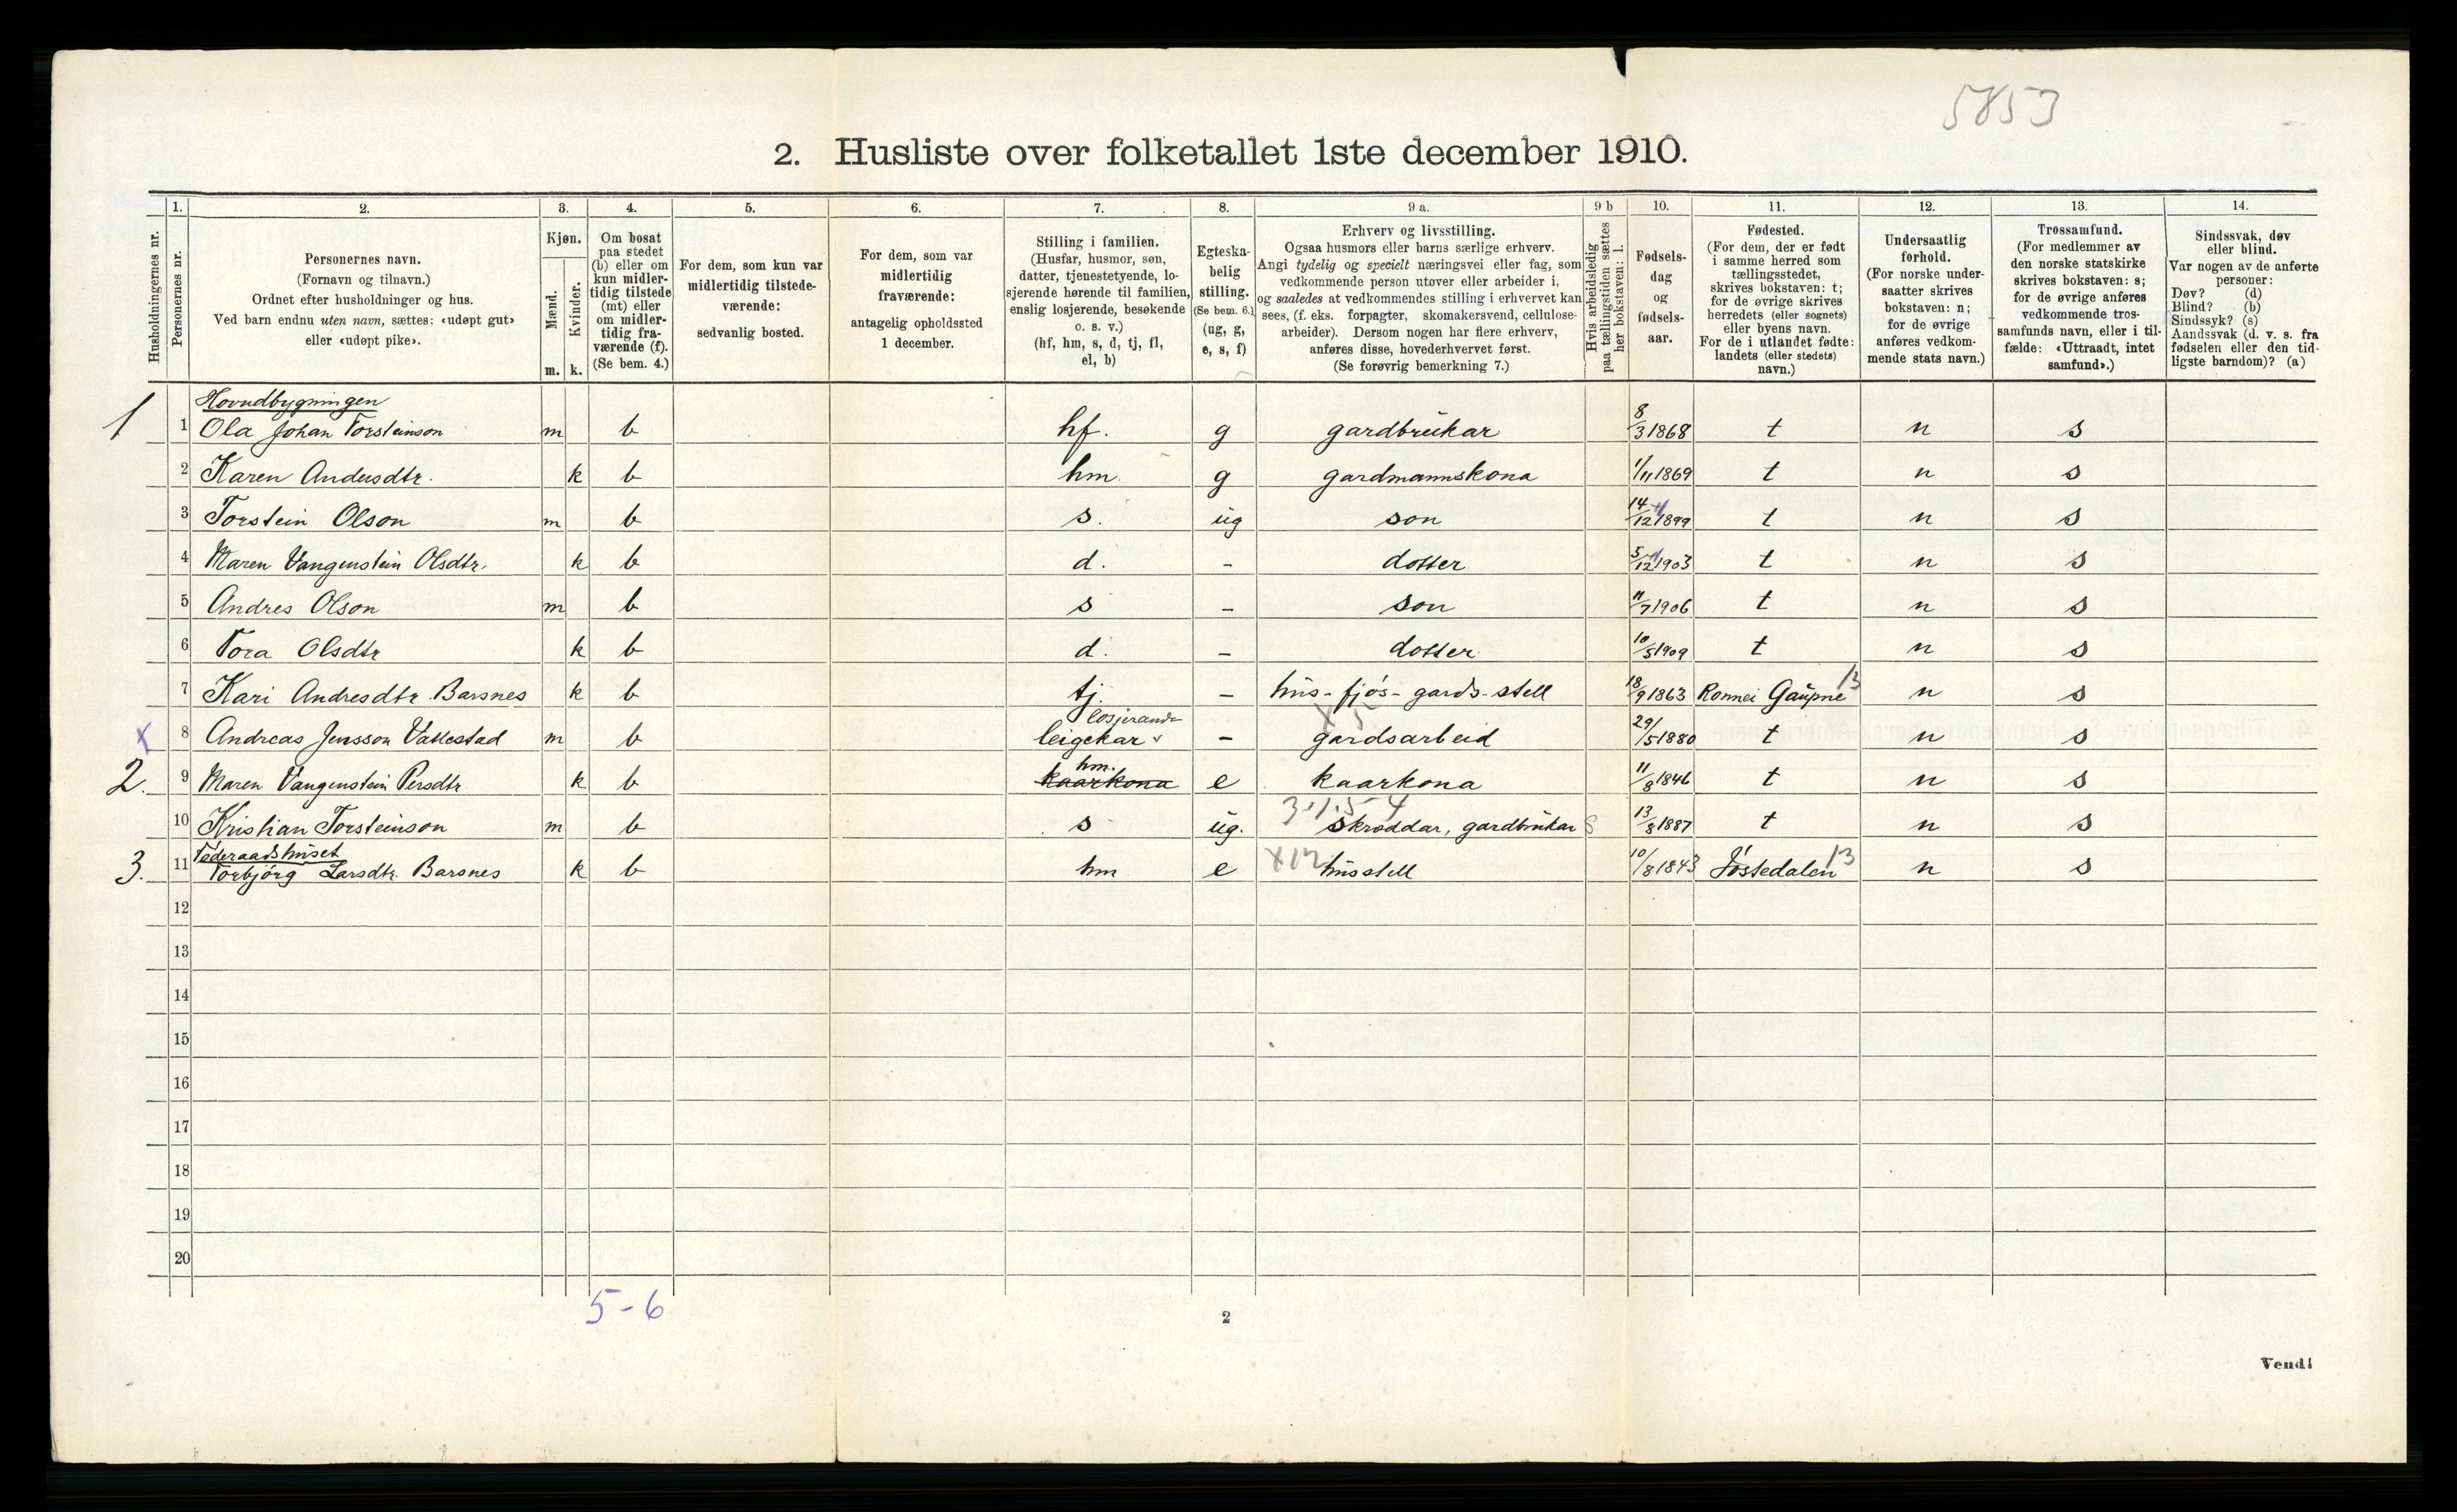 5853
2. Husliste over folketallet 1ste december 1910.
Husholdningernes nr.
1.
Personernes nr.
2.
Personernes navn.
(Fornavn og tilnavn.)
Ordnet efter husholdninger og hus.
Ved barn endnu uten navn, sættes: «udøpt gut»
eller «udøpt pike».
3.
Kjøn.
Mænd.
Kvinder.
m. k.
4.
Om bosat
paa stedet
(b) eller om
kun midler-
tidig tilstede
(mt) eller
om midler-
tidig fra-
værende (f).
(Se bem. 4.)
5.
For dem, som kun var
midlertidig tilstede-
værende:
sedvanlig bosted.
6.
For dem, som var
midlertidig
fraværende:
antagelig opholdssted
1 december.
7.
Stilling i familien.
(Husfar, husmor, søn,
datter, tjenestetyende, lo-
sjerende hørende til familien,
enslig losjerende, besøkende
o. s. v.)
(hf, hm, s, d, tj, fl,
el, b)
8.
Egteska-
belig
stilling.
(Se bem. 6.)
(ug, g,
e, s, f)
9 a.
Erhverv og livsstilling.
Ogsaa husmors eller barns særlige erhverv.
Angi tydelig og specielt næringsvei eller fag, som
vedkommende person utøver eller arbeider i,
og saaledes at vedkommendes stilling i erhvervet kan
sees, (f. eks. forpagter, skomakersvend, cellulose-
arbeider). Dersom nogen har flere erhverv,
anføres disse, hovederhvervet først.
(Se forøvrig bemerkning 7.)
9 b
Hvis arbeidsledig
paa tællingstiden sættes
her bokstaven: l.
10.
Fødsels-
dag
og
fødsels-
aar.
11.
Fødested.
(For dem, der er født
i samme herred som
tællingsstedet,
skrives bokstaven: t;
for de øvrige skrives
herredets (eller sognets)
eller byens navn.
For de i utlandet fødte:
landets (eller stedets)
navn.)
12.
Undersaatlig
forhold.
(For norske under-
saatter skrives
bokstaven: n;
for de øvrige
anføres vedkom-
mende stats navn.)
13.
Trossamfund.
(For medlemmer av
den norske statskirke
skrives bokstaven: s;
for de øvrige anføres
vedkommende tros-
samfunds navn, eller i til-
fælde: «Uttraadt, intet
samfund».)
14.
Sindssvak, døv
eller blind.
Var nogen av de anførte
personer:
Døv? (d)
Blind? (b)
Sindssyk? (s)
Aandssvak (d. v. s. fra
fødselen eller den tid-
ligste barndom)? (a)
Hovudbygningen
1 1 Ola Johan Torsteinson m b hf. g gardbrukar 8/3 1868 t n s
2 Karen Andersdtr. k b hm g gardmannskona 1/11 1869 t n s
3 Torstein Olson m b s. ug son 14/12 1899 t n s
4 Maren Vangenstein Olsdtr. k b d. - dotter 5/12 1903 t n s
5 Andres Olson m b s - son 11/7 1906 t n s
6 Tora Olsdtr k b d. - dotter 10/5 1909 t n s
7 Kari Andresdtr. Barsnes k b tj. - hus-fjøs-gards-stell 18/9 1863 Ronnei Gaupne 13 n s
losjerande
x 8 Andreas Jensson Vallestad m b leigekar - gardsarbeid 29/5 1880 t n s
hm.
2. 9 Maren Vangenstein Persdtr k b kaarkona e kaarkona 11/8 1846 t n s
10 Kristian Torsteinson m b s ug. skrøddar, gardbrukar 13/8 1887 t n s
Føderaadshuset
3. 11 Torbjørg Larsdtr. Barsnes k b hm e husstell 10/8 1843 Jostedalen 13 n s
12
13
14
15
16
17
18
19
20
5-6
2
Vend!